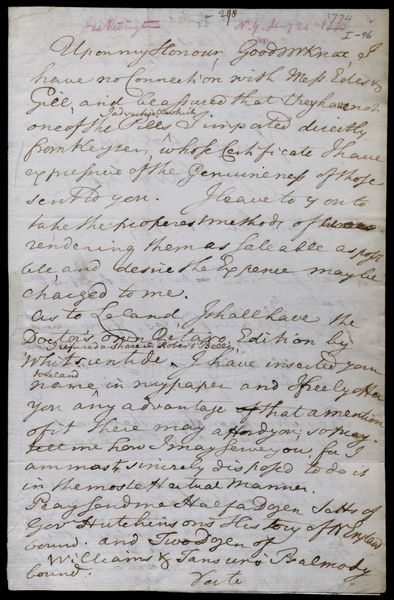 298 774
N.Y. I-96
Upon my Honour, Good Mr Knox, I
have no Connection with Mess Edes &
Gill, and be assured that they have not
one of the Pills I imported directly
from Keyser, whose Certificate I have
expressive of the Genuineness of those
sent to you. I leave to you to
take the properest methods of
rendering them as saleable as possi
ble, and desire the Expence may be
charged to me.
As to Leland I shall have the
Doctor's own Octavo Edition by
in Robert Bell's
Whitsuntide. I have inserted your
to Leland
name in my paper and freely offer
you any advantage that a mention
of it there may afford you; so pray
tell me how I may serve you, for I
am most sincerely disposed to do it
in the most effectual Manner.
Pray send me Half a Dozen Setts of
Gov Hutchinson's History of N England
bound. and Two Dozen of
Williams & Tansurs Psalmody
bound.